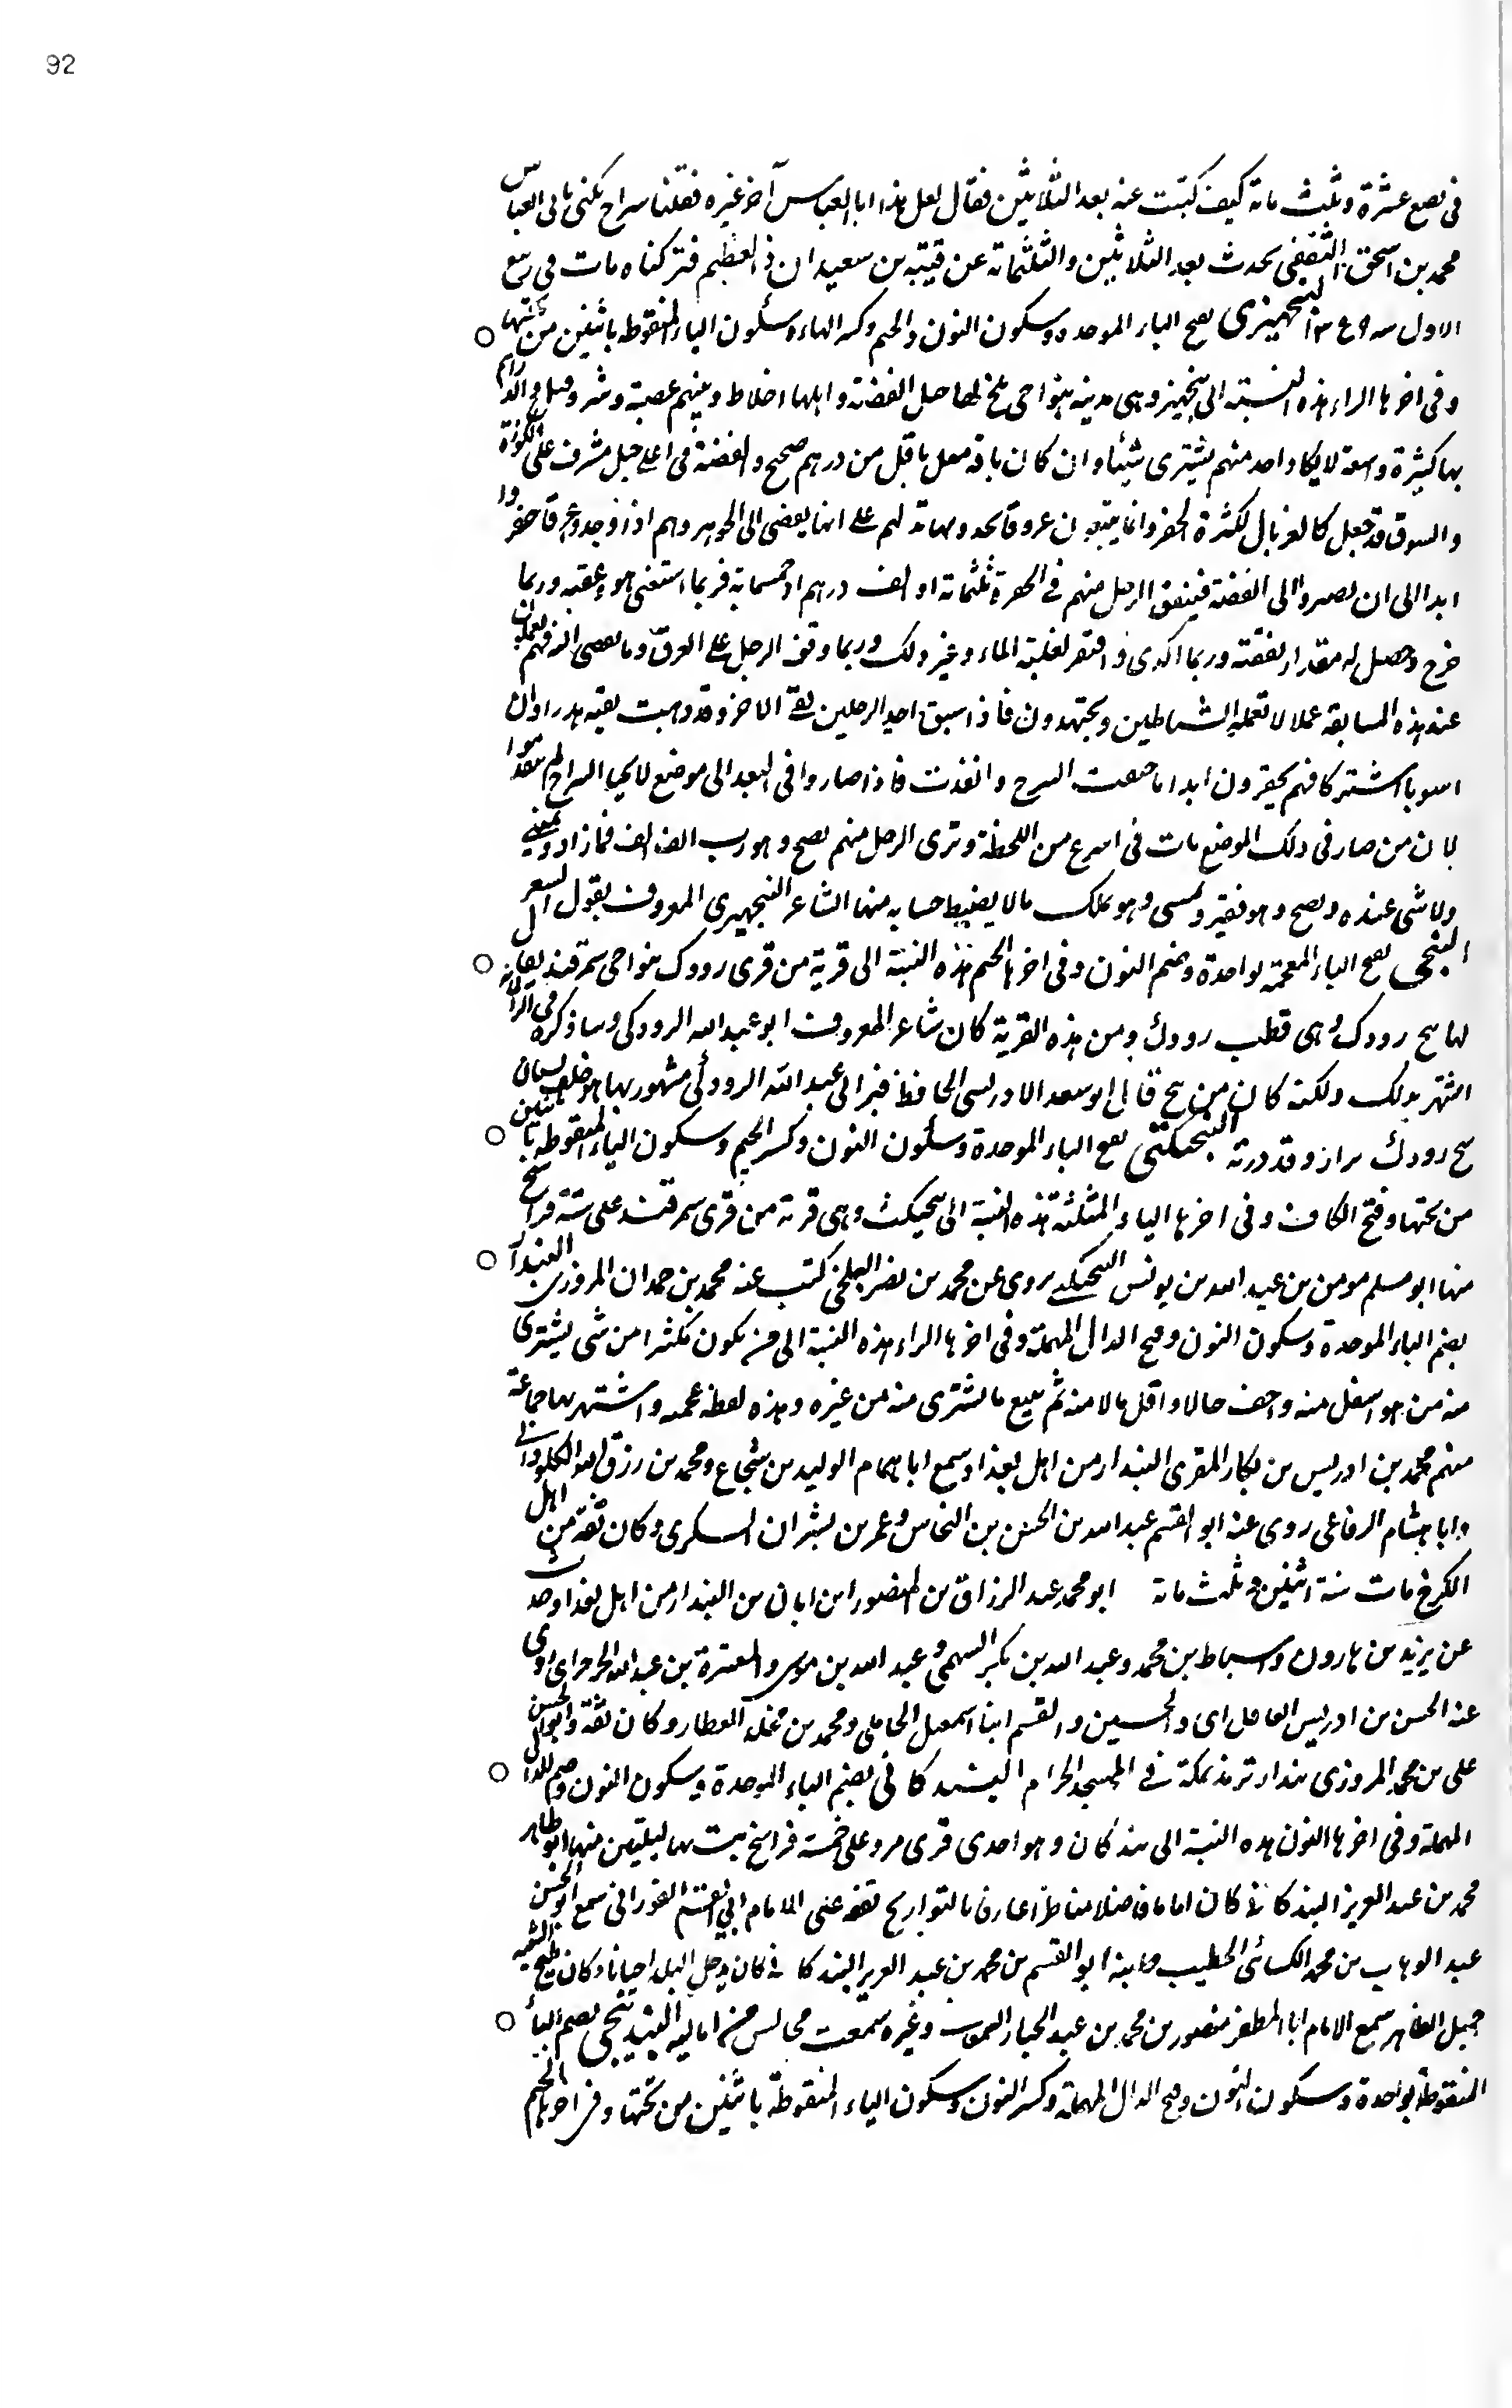 92
فى بضع عشرة وثلث مائة كيف كتبت عنه بعد الثلاثين فقال لعل هذا ابا العباس آخر غيره فقلنا سراح يكنى بابى العباس
محمد بن اسحق الثقفى يحدث بعد الثلاثين والثلثمائة عن قتيبة بن سعيد ان ذا لعظيم فتركناه مات فى ربيع
الاول سنة البنجهيرى بفتح الباء الموحدة وسكون النون والجيم وكسر الهاء وسكون الياء المنقوطة باثنين من تحتها
وفى اخرها الراء هذه النسبة الى بنجهير وهى مدينة بنواحى بلخ بها جبل الفضة واهلها اخلاط وبينهم عصبية وشر وقتل والدراهم
بها كثيرة واسعة لا يكاد احد منهم يشترى شيئا وان كان باقة بقل باقل من درهم صحيح والفضة فى اعلى جبل مشرف على
والسوق قد جعل كالغربال لكثرة الحفر وانما يتبعون عروقا يجدونها تدلهم على انها يفضى الى الجوهر وهم اذا وجدوا عرقا حفروا
ابدا الى ان يصيروا الى الفضة فينفق الرجل منهم فى الحفرة ثلثمائة الف درهم او خمسمائة فربما استغنى هو وعقبه وربما
خرج وحصل له مقدار نفقته وربما اكدى وافتقر لغلبة الماء وغير ذلك وربما وقف الرجل على العرق
عند هذه المسابقة عملا لا تعمله الشياطين ويجتهدون فاذا سبق احد الرجلين بقى الاخر وقد ذهبت نفقته هدرا وان
استويا اشتركا فهم يحفرون ابدا ما حييت السرج وانقدت فاذا صاروا فى البعد الى موضع لا يحيا السراج لم يتقدموا
لان من صار فى ذلك الموضع مات فى اسرع من اللحظة وترى الرجل منهم يصبح وهو رب الف الف فما زاد ويمسى
ولا شى عنده ويصبح وهو فقير ويمسى وهو يملك ما لا يضبط حسابه منها الشاعر البنجهيرى المعروف بقول الشعر
البنجى بفتح الباء المعجمة بواحدة وضم النون وفى اخرها الجيم هذه النسبة الى قرية من قرى رودك بنواحى سمرقند يقال
لها بنج رودك وهى قطب رودك ومن هذه القرية كان شاعر المعروف ابو عبد الله الرودكى وساذكره فى الراء
اشتهر بذلك ولكنه كان من بنج قال ابو سعد الادريسى الحافظ قبر ابى عبد الله الرودكى مشهور بها هو خلف بستان
بنج رودك يزار وقد زرته البنجيكثى بفتح الباء الموحدة وسكون النون وكسر الجيم وسكون الياء المنقوطة باثنين
من تحتها وفتح الكاف وفى اخرها الياء والمثلثة هذه النسبة الى بنجيكث وهى قرية من قرى سمرقند على ستة فراسخ
منها ابو مسلم مومن بن عبد الله بن يونس البنجيكثى يروى عن محمد بن نصر البلخى كتب عنه محمد بن حمدان المروزى البندار
بضم الباء الموحدة وسكون النون وفتح الدال المهملة وفى اخرها الراء هذه النسبة الى من يكون مكثرا من شى يشترى
منه من هو اسفل منه واخف حالا واقل مالا منه ثم يبيع ما يشترى منه من غيره وهذه لفظة عجمية واشتهر بها جماعة
منهم محمد بن ادريس بن بكار المقرى البندار من اهل بغداد سمع ابا همام الوليد بن شجاع ومحمد بن رزق الله الكلوذانى
وابا هشام الرفاعى روى عنه ابو القسم عبد الله بن الحسن بن النخاس وعمر بن بشران السكرى وكان ثقة من اهل
الكرخ مات سنة اثنين وثلث مائة ابو محمد عبد الرزاق بن منصور بن ابان بن البندار من اهل بغداد حدث
عن يزيد بن هارون واسباط بن محمد وعبد الله بن بكر السهمى وعبد الله بن موسى والمغيرة بن عبد الله الجرجراى روى
عنه الحسن بن ادريس القافلاى والحسين والقسم ابنا اسمعيل المحاملى ومحمد بن مخلد العطار وكان ثقة وابو الحسن
على بن محمد المروزى بندار ترمذ بمكة فى المسجد الحرام البندكانى بضم الباء الموحدة وسكون النون وضم الدال
المهملة وفى اخرها النون هذه النسبة الى بندكان وهو احدى قرى مرو على خمسة فراسخ بت بها ليلتين منها ابو طاهر
محمد بن عبد العزيز البندكانى كان اماما فاضلا مناظرا عارفا بالتواريخ تفقه على الامام ابى القسم الفورانى سمع ابو الحسن
عبد الوهاب بن محمد الكسائى الخطيب وابنه ابو القسم بن محمد بن عبد العزيز البندكانى كان يدخل البلد احيانا وكان مليح الشيبة
جميل الظاهر سمع الامام ابا المظفر منصور بن محمد بن عبد الجبار السمعانى وغيره سمعت مجالس من اماليه البندنيجى بضم الباء
المنقوطة بواحدة وسكون النون وفتح الدال المهملة وكسر النون وسكون الياء المنقوطة باثنين من تحتها وفى اخرها الجيم